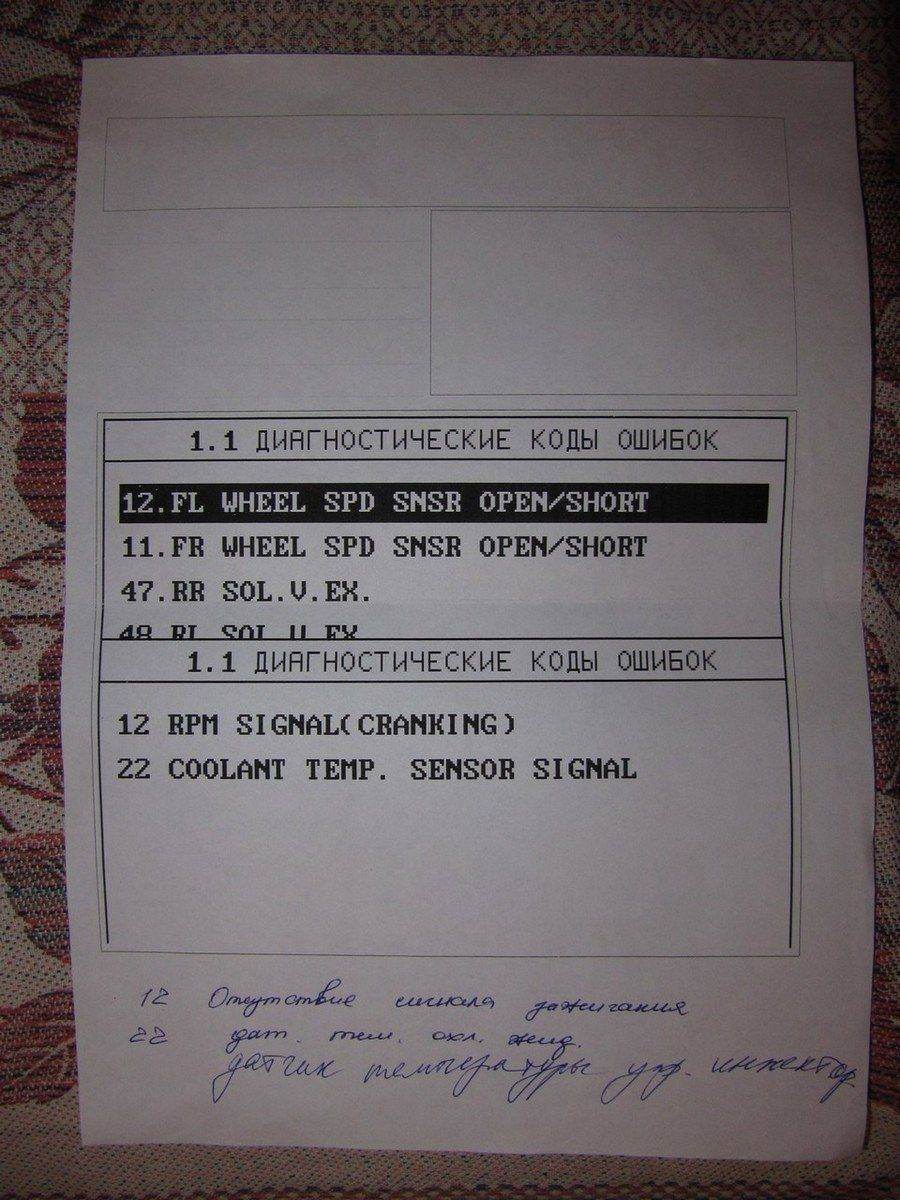 1.1 ДИАГНОСТИЧЕСКИЕ КОДЫ ОШИБОК
12.FL WHEEL SPD SNSR OPEN/SHORT
11.FR WHEEL SPD SNSR OPEN/SHORT
47.RR SOL.V.EX.
48 RL SOL U EX
1.1 ДИАГНОСТИЧЕСКИЕ КОДЫ ОШИБОК
12 RPM SIGNAL(CRANKING)
22 COOLANT TEMP. SENSOR SIGNAL
12 Отсутствие сигнала зажигания
22 дат. тем. охл. жид.
датчик температуры упр. инжектор